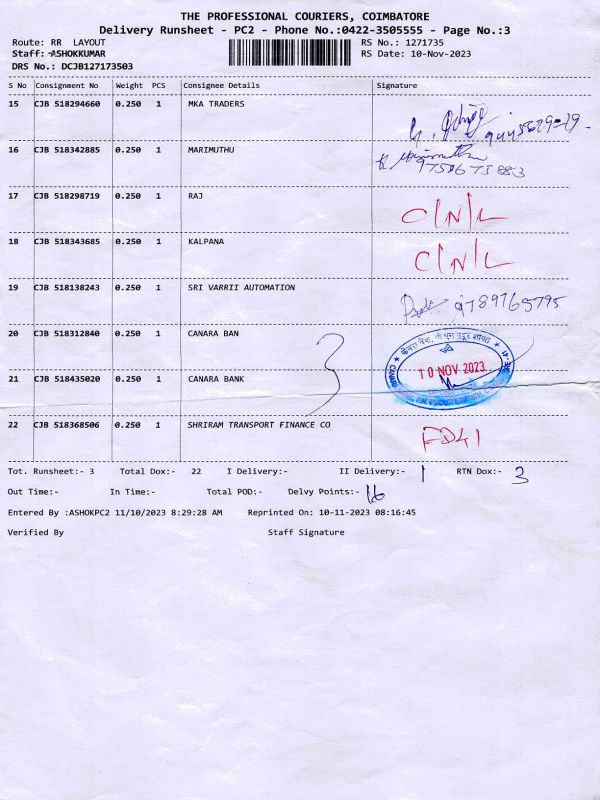 THE PROFESSIONAL COURIERS, COIMBATORE
Delivery Runsheet - PC2 - Phone No.:0422-3505555 - Page No.:3
Route: RR LAYOUT
RS No.: 1271735
Staff: ASHOKKUMAR
RS Date: 10-Nov-2023
DRS No.: DCJB127173503
S No Consignment No Weight PCS Consignee Details Signature
15 CJB 518294660 0.250 1 MKA TRADERS
16 CJB 518342885 0.250 1 MARIMUTHU
9750673883
17 CJB 518298719 0.250 1 RAJ C/N/L
18 CJB 518343685 0.250 1 KALPANA C/N/L
19 CJB 518138243 0.250 1 SRI VARRII AUTOMATION 9789765795
20 CJB 518312840 0.250 1 CANARA BAN
3
10 NOV 2023
21 CJB 518435020 0.250 1 CANARA BANK
22 CJB 518368506 0.250 1 SHRIRAM TRANSPORT FINANCE CO
Tot. Runsheet:- 3 Total Dox:- 22 I Delivery:- II Delivery:- 1 RTN Dox:- 3
Out Time:- In Time:- Total POD:- Delvy Points:- 16
Entered By :ASHOKPC2 11/10/2023 8:29:28 AM Reprinted On: 10-11-2023 08:16:45
Verified By Staff Signature